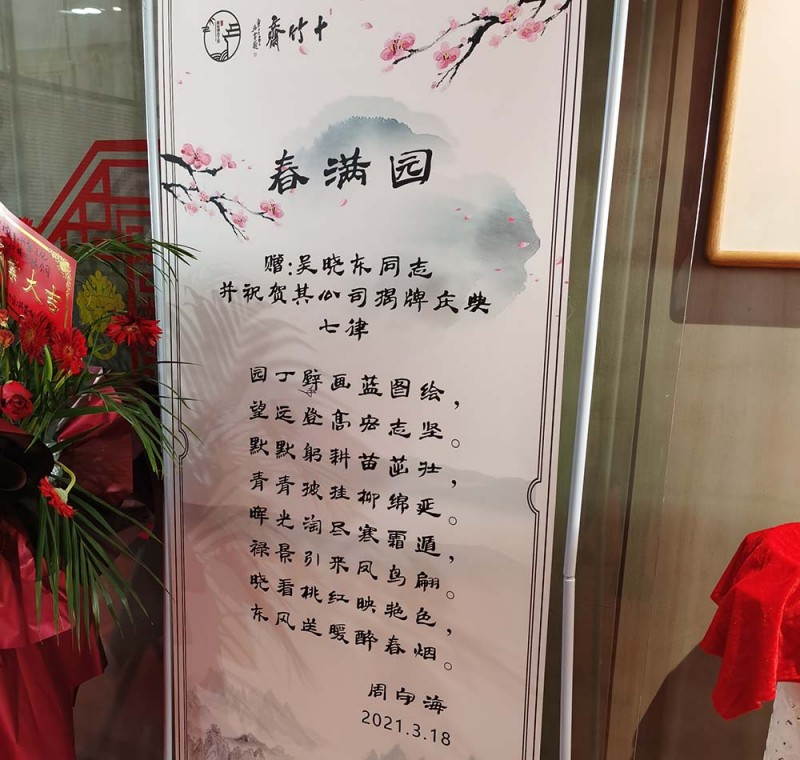 十竹齋
春满园
赠:吴晓东同志
并祝贺其公司揭牌庆典
七律
园丁擘画蓝图绘，
望远登高宏志坚。
默默躬耕苗茁壮，
青青披挂柳绵延。
晖光淘尽寒霜遁，
禄景引来凤鸟翩。
晓看桃红映艳色，
东风送暖醉春烟。
周向海
2021.3.18
大吉